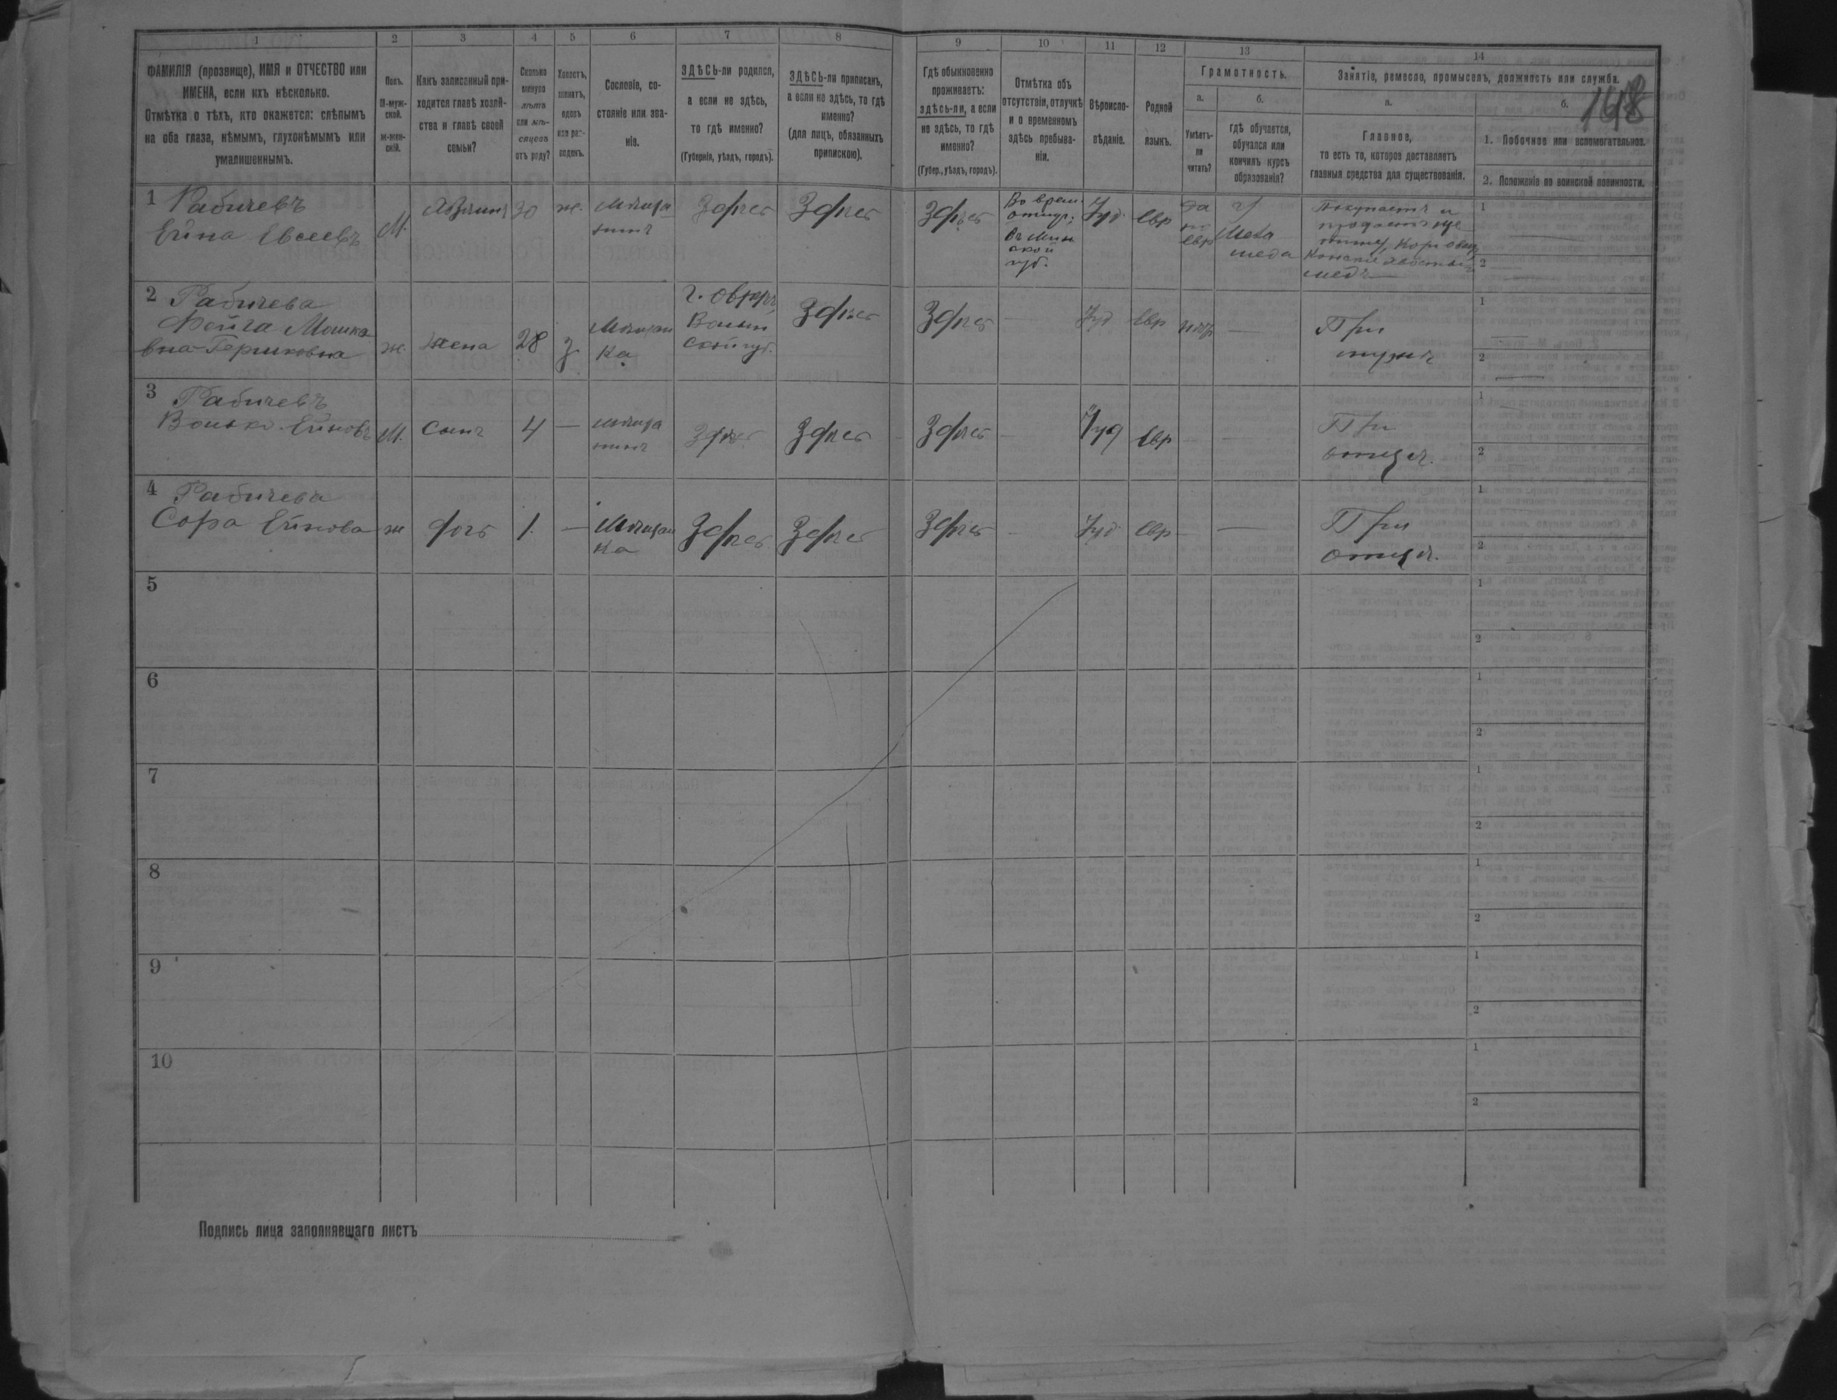 1 2 3 4 5 6 7 8 9 10 11 12 13 14
ФАМИЛІЯ (прозвище), ИМЯ и ОТЧЕСТВО или
ИМЕНА, если ихъ нѣсколько.
Отмѣтка о тѣхъ, кто окажется: слѣпымъ
на оба глаза, нѣмымъ, глухонѣмымъ или
умалишеннымъ.
Полъ.
М-муж-
ской.
Ж-жен-
скій.
Какъ записанный при-
ходится главѣ хозяй-
ства и главѣ своей
семьи?
Сколько
минуло
лѣтъ
или мѣ-
сяцевъ
отъ роду?
Холостъ,
женатъ,
вдовъ
или раз-
веденъ.
Сословіе, со-
стояніе или зва-
ніе.
ЗДѢСЬ-ли родился,
а если не здѣсь,
то гдѣ именно?
(Губернія, уѣздъ, городъ).
ЗДѢСЬ-ли приписанъ,
а если не здѣсь, то гдѣ
именно?
(для лицъ, обязанныхъ
припискою).
Гдѣ обыкновенно
проживаетъ:
здѣсь-ли, а если
не здѣсь, то гдѣ
именно?
(Губер., уѣздъ, городъ).
Отмѣтка объ
отсутствіи, отлучкѣ
и о временномъ
здѣсь пребыва-
ніи.
Вѣроиспо-
вѣданіе.
Родной
языкъ.
Грамотность.
а.
Умѣетъ-
ли
читать?
б.
гдѣ обучается,
обучался или
кончилъ курсъ
образованія?
Занятіе, ремесло, промыселъ, должность или служба.
а.
Главное,
то есть то, которое доставляетъ
главныя средства для существованія.
б.
148
1. Побочное или вспомогательное.
2. Положеніе по воинской повинности.
1 Рабичевъ
Ейна Евсеевъ
М. Хозяинъ 30 ж. Мѣща
нинъ
Здѣсь Здѣсь Здѣсь
Во врем.
отлуч.
въ Мин
ской
губ.
Іуд Евр да
по
евр
у
мела
меда
Покупаетъ и
продаетъ ще
тину, коровьи
конскіе хвосты
1
2
2 Рабичева
Фейга Мошка
вна-Гершковна
ж. жена 28 з Мѣщан
ка
г. Овручъ,
Волын
ской губ.
Здѣсь Здѣсь — Іуд Евр негр —
При
мужѣ
1
2
3 Рабичевъ
Волько Ейновъ
М. сынъ 4 — мѣща
нинъ
Здѣсь Здѣсь Здѣсь — Іуд Евр — —
При
отцѣ.
1
2
4 Рабичева
Сора Ейнова
ж дочь 1. — Мѣщан
ка
Здѣсь Здѣсь Здѣсь — Іуд Евр — —
При
отцѣ.
1
2
5
1
2
6
1
2
7
1
2
8
1
2
9
1
2
10
1
2
Подпись лица заполнявшаго листъ